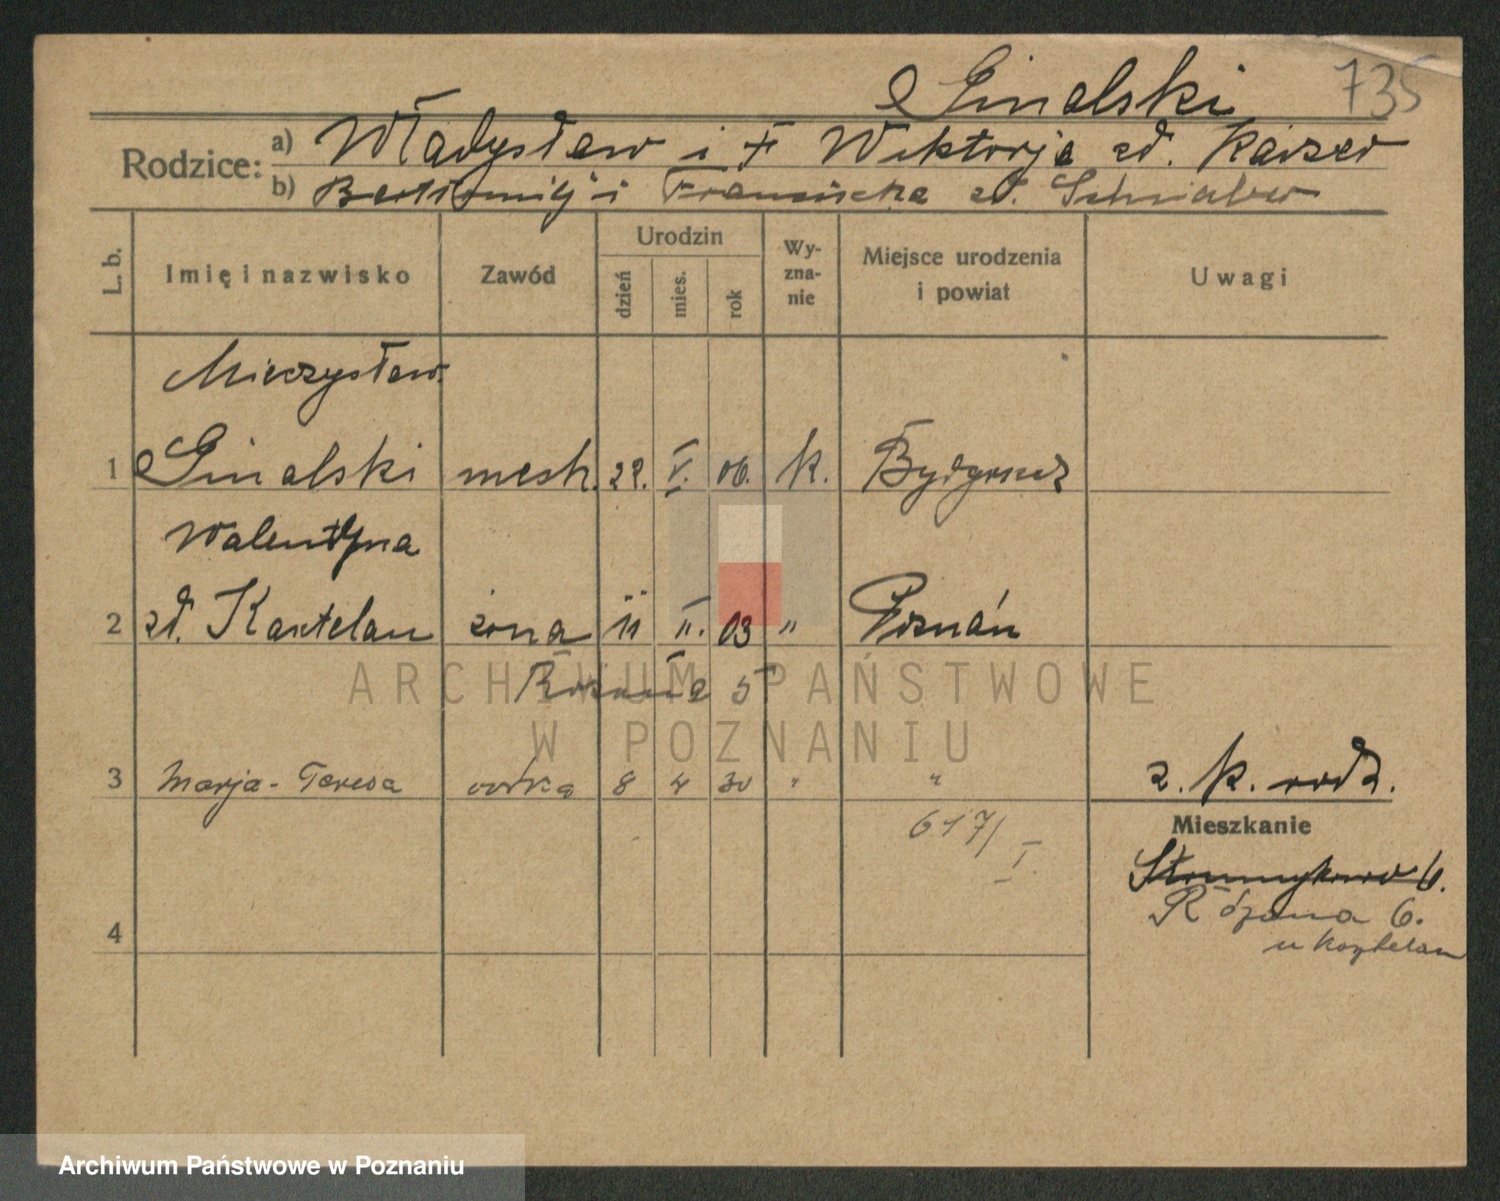 Ginalski 735
Rodzice: a) Władysław i F Wiktorja zd. Kaiser
b) Bartłomiej i Franciszka zd. Schnieber
L. b. Imię i nazwisko Zawód Urodzin dzień mies. rok Wy-zna-nie Miejsce urodzenia i powiat Uwagi
Mieczysław
1 Ginalski mech. 22. V. 06. k. Bydgoszcz
Walentyna
2 zd. Kasztelan żona 11 II. 03 " Poznań
Różana 5
3 Marja-Teresa córka 8 4 30 " " z. k. rodz.
617/I.
Mieszkanie
6.
Różana 6.
4
u Kasztelan
ARCHIWUM PAŃSTWOWE
W POZNANIU
Archiwum Państwowe w Poznaniu